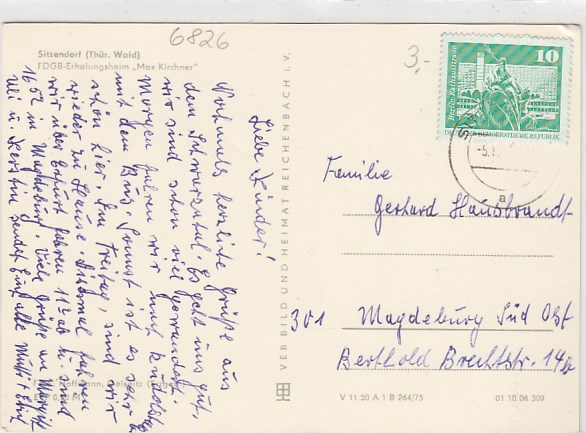 6826
3,-
Sitzendorf (Thür. Wald)
FDGB-Erholungsheim „Max Kirchner"
Liebe Kinder!
Nochmals herzliche Grüße aus
dem Schwarzatal. Es geht uns gut,
wir sind schon viel gewandert.
Morgen fahren wir nach Rudolst.
mit dem Bus. Sonst ist es sehr
schön hier. Am Freitag, sind wir
wieder zu Hause. Diesmal fahren
wir über Erfurt fahren 11²² ab u. sind
16⁵² in Magdeburg. Viele Grüße an
Uli u. Kerstin sendet Euch alle Mutti + Erich
VEB BILD UND HEIMAT REICHENBACH i. V.
10
Berlin, Rathausstraße
DEUTSCHE DEMOKRATISCHE REPUBLIK
-5.1
a
Familie
Gerhard Hausbrandt
301 Magdeburg Süd Ost
Berthold Brechtstr. 14
Foto: Hoffmann,
V 11 50 A 1 B 264/75
01 10 06 309